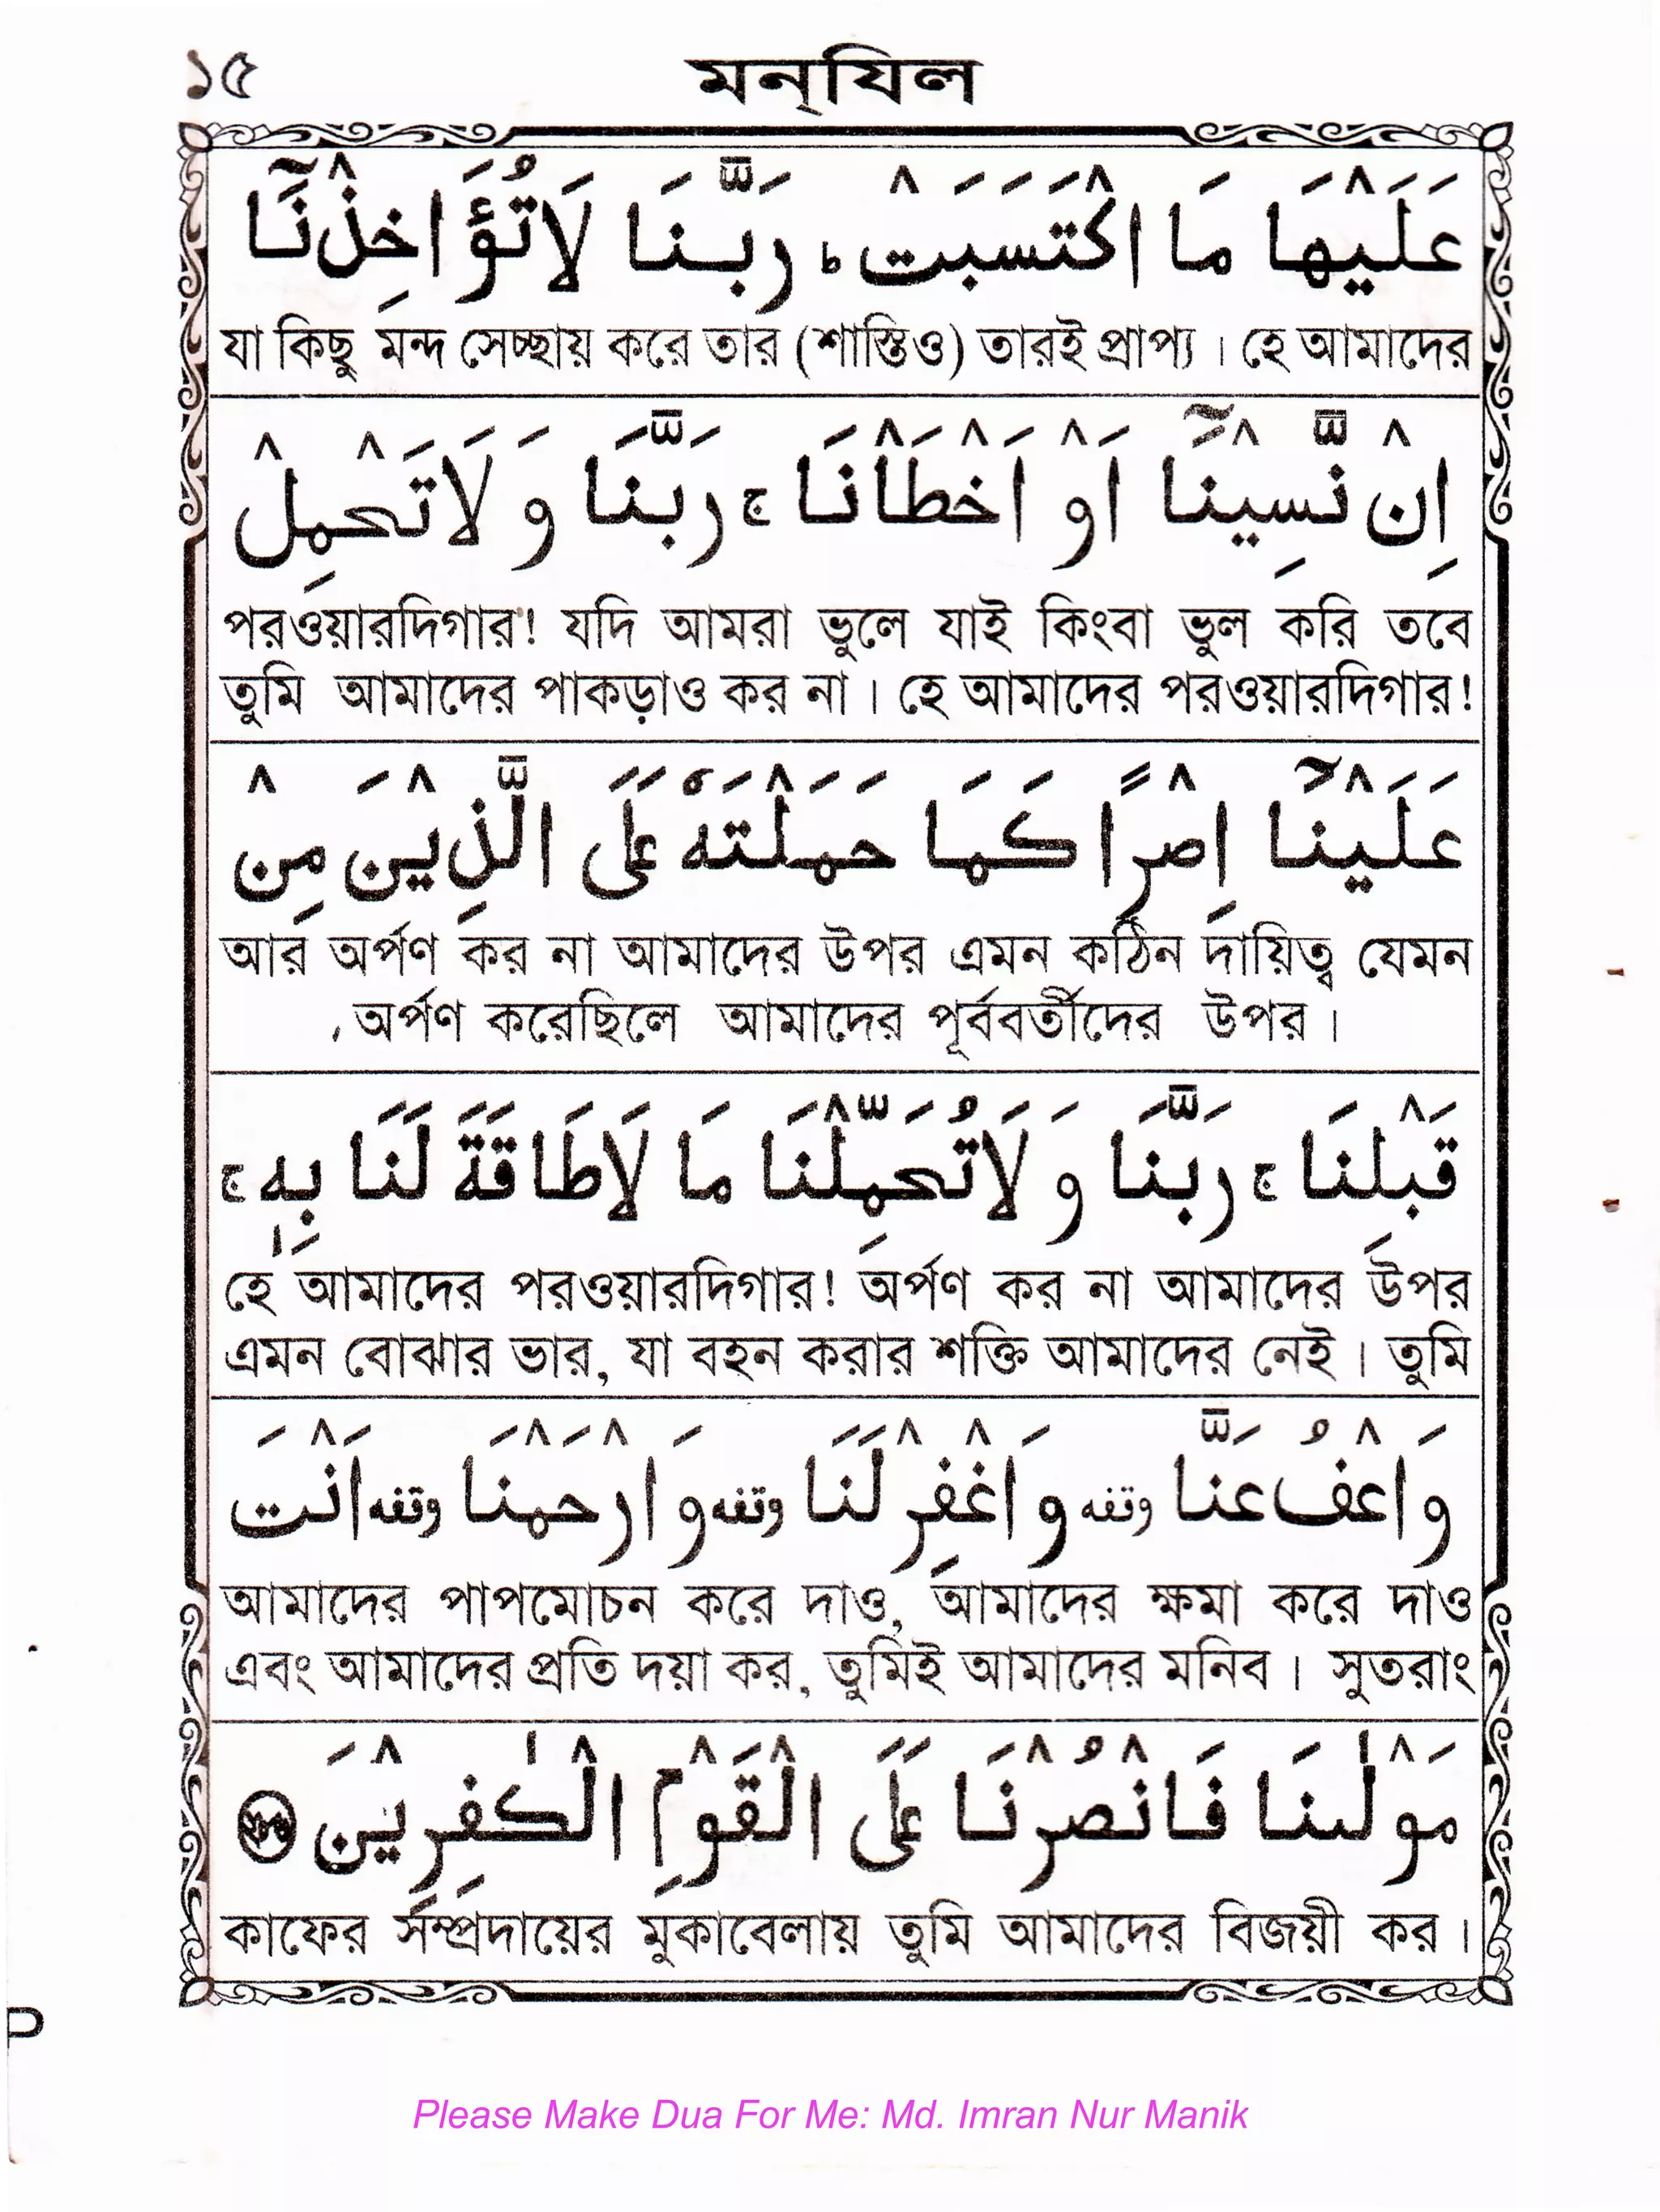 ১৫
মন্‌যিল
عَلَيْهَا مَا اكْتَسَبَتْ ؕ رَبَّنَا لَا تُؤَاخِذْنَاۤ
যা কিছু মন্দ সেচ্ছায় করে তার (শাস্তিও) তারই প্রাপ্য । হে আমাদের
اِنْ نَّسِيْنَاۤ اَوْ اَخْطَاْنَا ۚ رَبَّنَا وَ لَا تَحْمِلْ
পরওয়ারদিগার! যদি আমরা ভুলে যাই কিংবা ভুল করি তবে
তুমি আমাদের পাকড়াও কর না । হে আমাদের পরওয়ারদিগার!
عَلَيْنَاۤ اِصْرًا كَمَا حَمَلْتَهٗ عَلَى الَّذِيْنَ مِنْ
আর অর্পণ কর না আমাদের উপর এমন কঠিন দায়িত্ব যেমন
অর্পণ করেছিলে আমাদের পূর্ববর্তীদের উপর ।
قَبْلِنَا ۚ رَبَّنَا وَ لَا تُحَمِّلْنَا مَا لَا طَاقَةَ لَنَا بِهٖ ۚ
হে আমাদের পরওয়ারদিগার! অর্পণ কর না আমাদের উপর
এমন বোঝার ভার, যা বহন করার শক্তি আমাদের নেই । তুমি
وَاعْفُ عَنَّا وقفه وَاغْفِرْ لَنَا وقفه وَارْحَمْنَا وقفه اَنْتَ
আমাদের পাপমোচন করে দাও, আমাদের ক্ষমা করে দাও
এবং আমাদের প্রতি দয়া কর, তুমিই আমাদের মনিব । সুতরাং
مَوْلٰىنَا فَانْصُرْنَا عَلَى الْقَوْمِ الْكٰفِرِيْنَ
কাফের সম্প্রদায়ের মুকাবেলায় তুমি আমাদের বিজয়ী কর ।
Please Make Dua For Me: Md. Imran Nur Manik